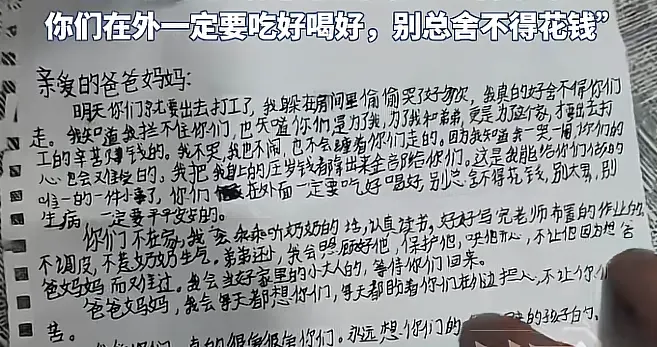 你们在外一定要吃好喝好，别总舍不得花钱”
亲爱的爸爸妈妈：
明天你们就要出去打工了，我躲在房间里偷偷哭了好多次，我真的好舍不得你们
走。我知道我拦不住你们，也知道你们是为了我，为了我和弟弟，更是为这个家，才要出去打
工的辛苦赚钱的。我不哭，我也不闹，也不会缠着你们走的。因为我知道我一哭一闹，你们的
心也会难受的。我把我身上的压岁钱都拿出来全部给你们。这是我能给你们做的
唯一的一件小事了，你们在外面一定要吃好喝好，别总舍不得花钱，别太累，别
生病，一定要平平安安的。
你们不在家，我会乖乖听奶奶的话，认真读书，好好写完老师布置的作业的，
不调皮，不惹奶奶生气。弟弟还小，我会照顾好他，保护他，哄他开心，不让他因为想爸
爸妈妈而难过。我会当好家里的小大人的，等待你们回来。
爸爸妈妈，我会每天都想你们，每天都盼着你们在外边
苦。
真的很爱很爱你们。永远想你们的 的孩子